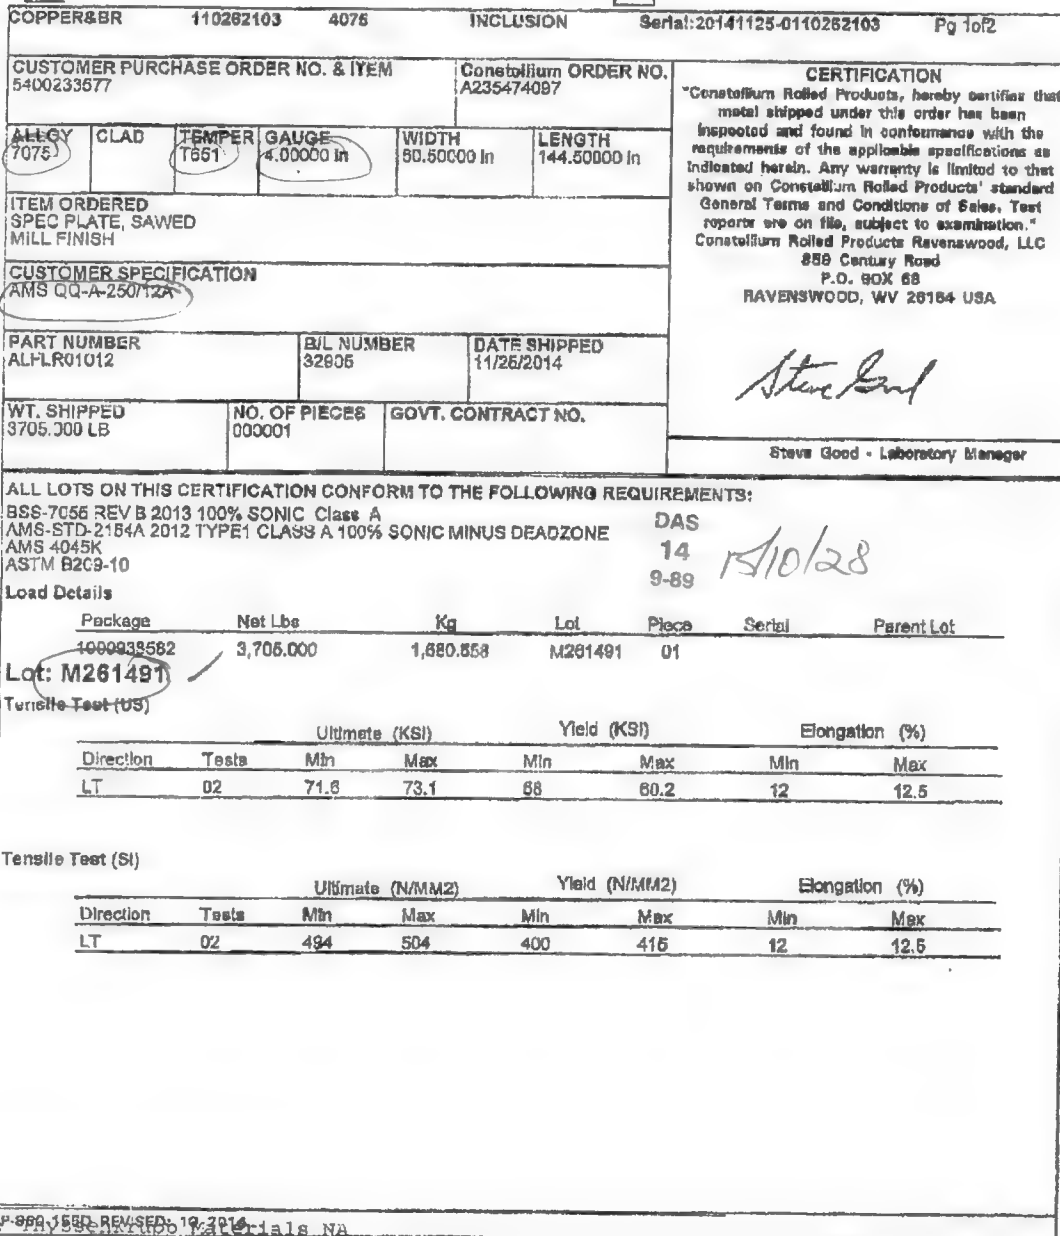 COPPER&BR 110262103 4075 INCLUSION Serial:20141125-0110262103 Pg 1of2
CUSTOMER PURCHASE ORDER NO. & ITEM
5400233577
Constellium ORDER NO.
A235474097
ALLOY
7075
CLAD
TEMPER
T651
GAUGE
4.00000 in
WIDTH
60.50000 in
LENGTH
144.50000 in
ITEM ORDERED
SPEC PLATE, SAWED
MILL FINISH
CUSTOMER SPECIFICATION
AMS QQ-A-250/12A
PART NUMBER
ALFLR01012
B/L NUMBER
32905
DATE SHIPPED
11/25/2014
WT. SHIPPED
3705.000 LB
NO. OF PIECES
000001
GOVT. CONTRACT NO.
CERTIFICATION
"Constellium Rolled Products, hereby certifies that
metal shipped under this order has been
inspected and found in conformance with the
requirements of the applicable specifications as
indicated herein. Any warranty is limited to that
shown on Constellium Rolled Products' standard
General Terms and Conditions of Sales. Test
reports are on file, subject to examination."
Constellium Rolled Products Ravenswood, LLC
859 Century Road
P.O. BOX 68
RAVENSWOOD, WV 26164 USA
Steve Good
Steve Good - Laboratory Manager
ALL LOTS ON THIS CERTIFICATION CONFORM TO THE FOLLOWING REQUIREMENTS:
BSS-7055 REV B 2013 100% SONIC Class A
AMS-STD-2154A 2012 TYPE1 CLASS A 100% SONIC MINUS DEADZONE
AMS 4045K
ASTM B209-10
DAS
14
9-89
15/10/28
Load Details
Package Net Lbs Kg Lot Piece Serial Parent Lot
1000938582 3,705.000 1,680.558 M261491 01
Lot: M261491
Tensile Test (US)
Ultimate (KSI) Yield (KSI) Elongation (%)
Direction Tests Min Max Min Max Min Max
LT 02 71.6 73.1 58 60.2 12 12.5
Tensile Test (SI)
Ultimate (N/MM2) Yield (N/MM2) Elongation (%)
Direction Tests Min Max Min Max Min Max
LT 02 494 504 400 415 12 12.5
REVISED:
Materials NA